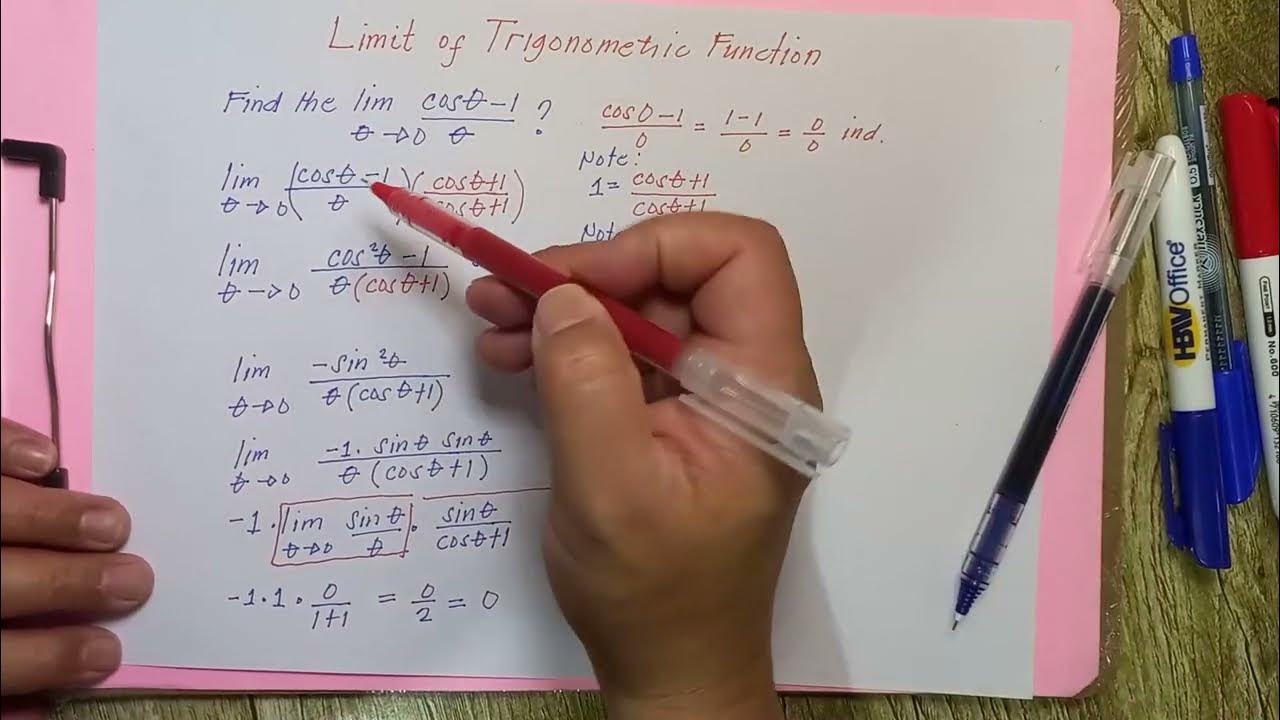 Limit of Trigonometric Function
Find the lim θ→0 (cosθ-1)/θ ?
(cos0-1)/0 = (1-1)/0 = 0/0 ind.
Note:
1 = (cosθ+1)/(cosθ+1)
lim θ→0 ((cosθ-1)/θ)((cosθ+1)/(cosθ+1))
lim θ→0 (cos²θ-1)/(θ(cosθ+1))
lim θ→0 (-sin²θ)/(θ(cosθ+1))
lim θ→0 (-1. sinθ sinθ)/(θ(cosθ+1))
-1 · lim θ→0 sinθ/θ · sinθ/(cosθ+1)
-1·1· 0/(1+1) = 0/2 = 0
HBWOffice
PERMANENT Marcador
0.5
No.6600